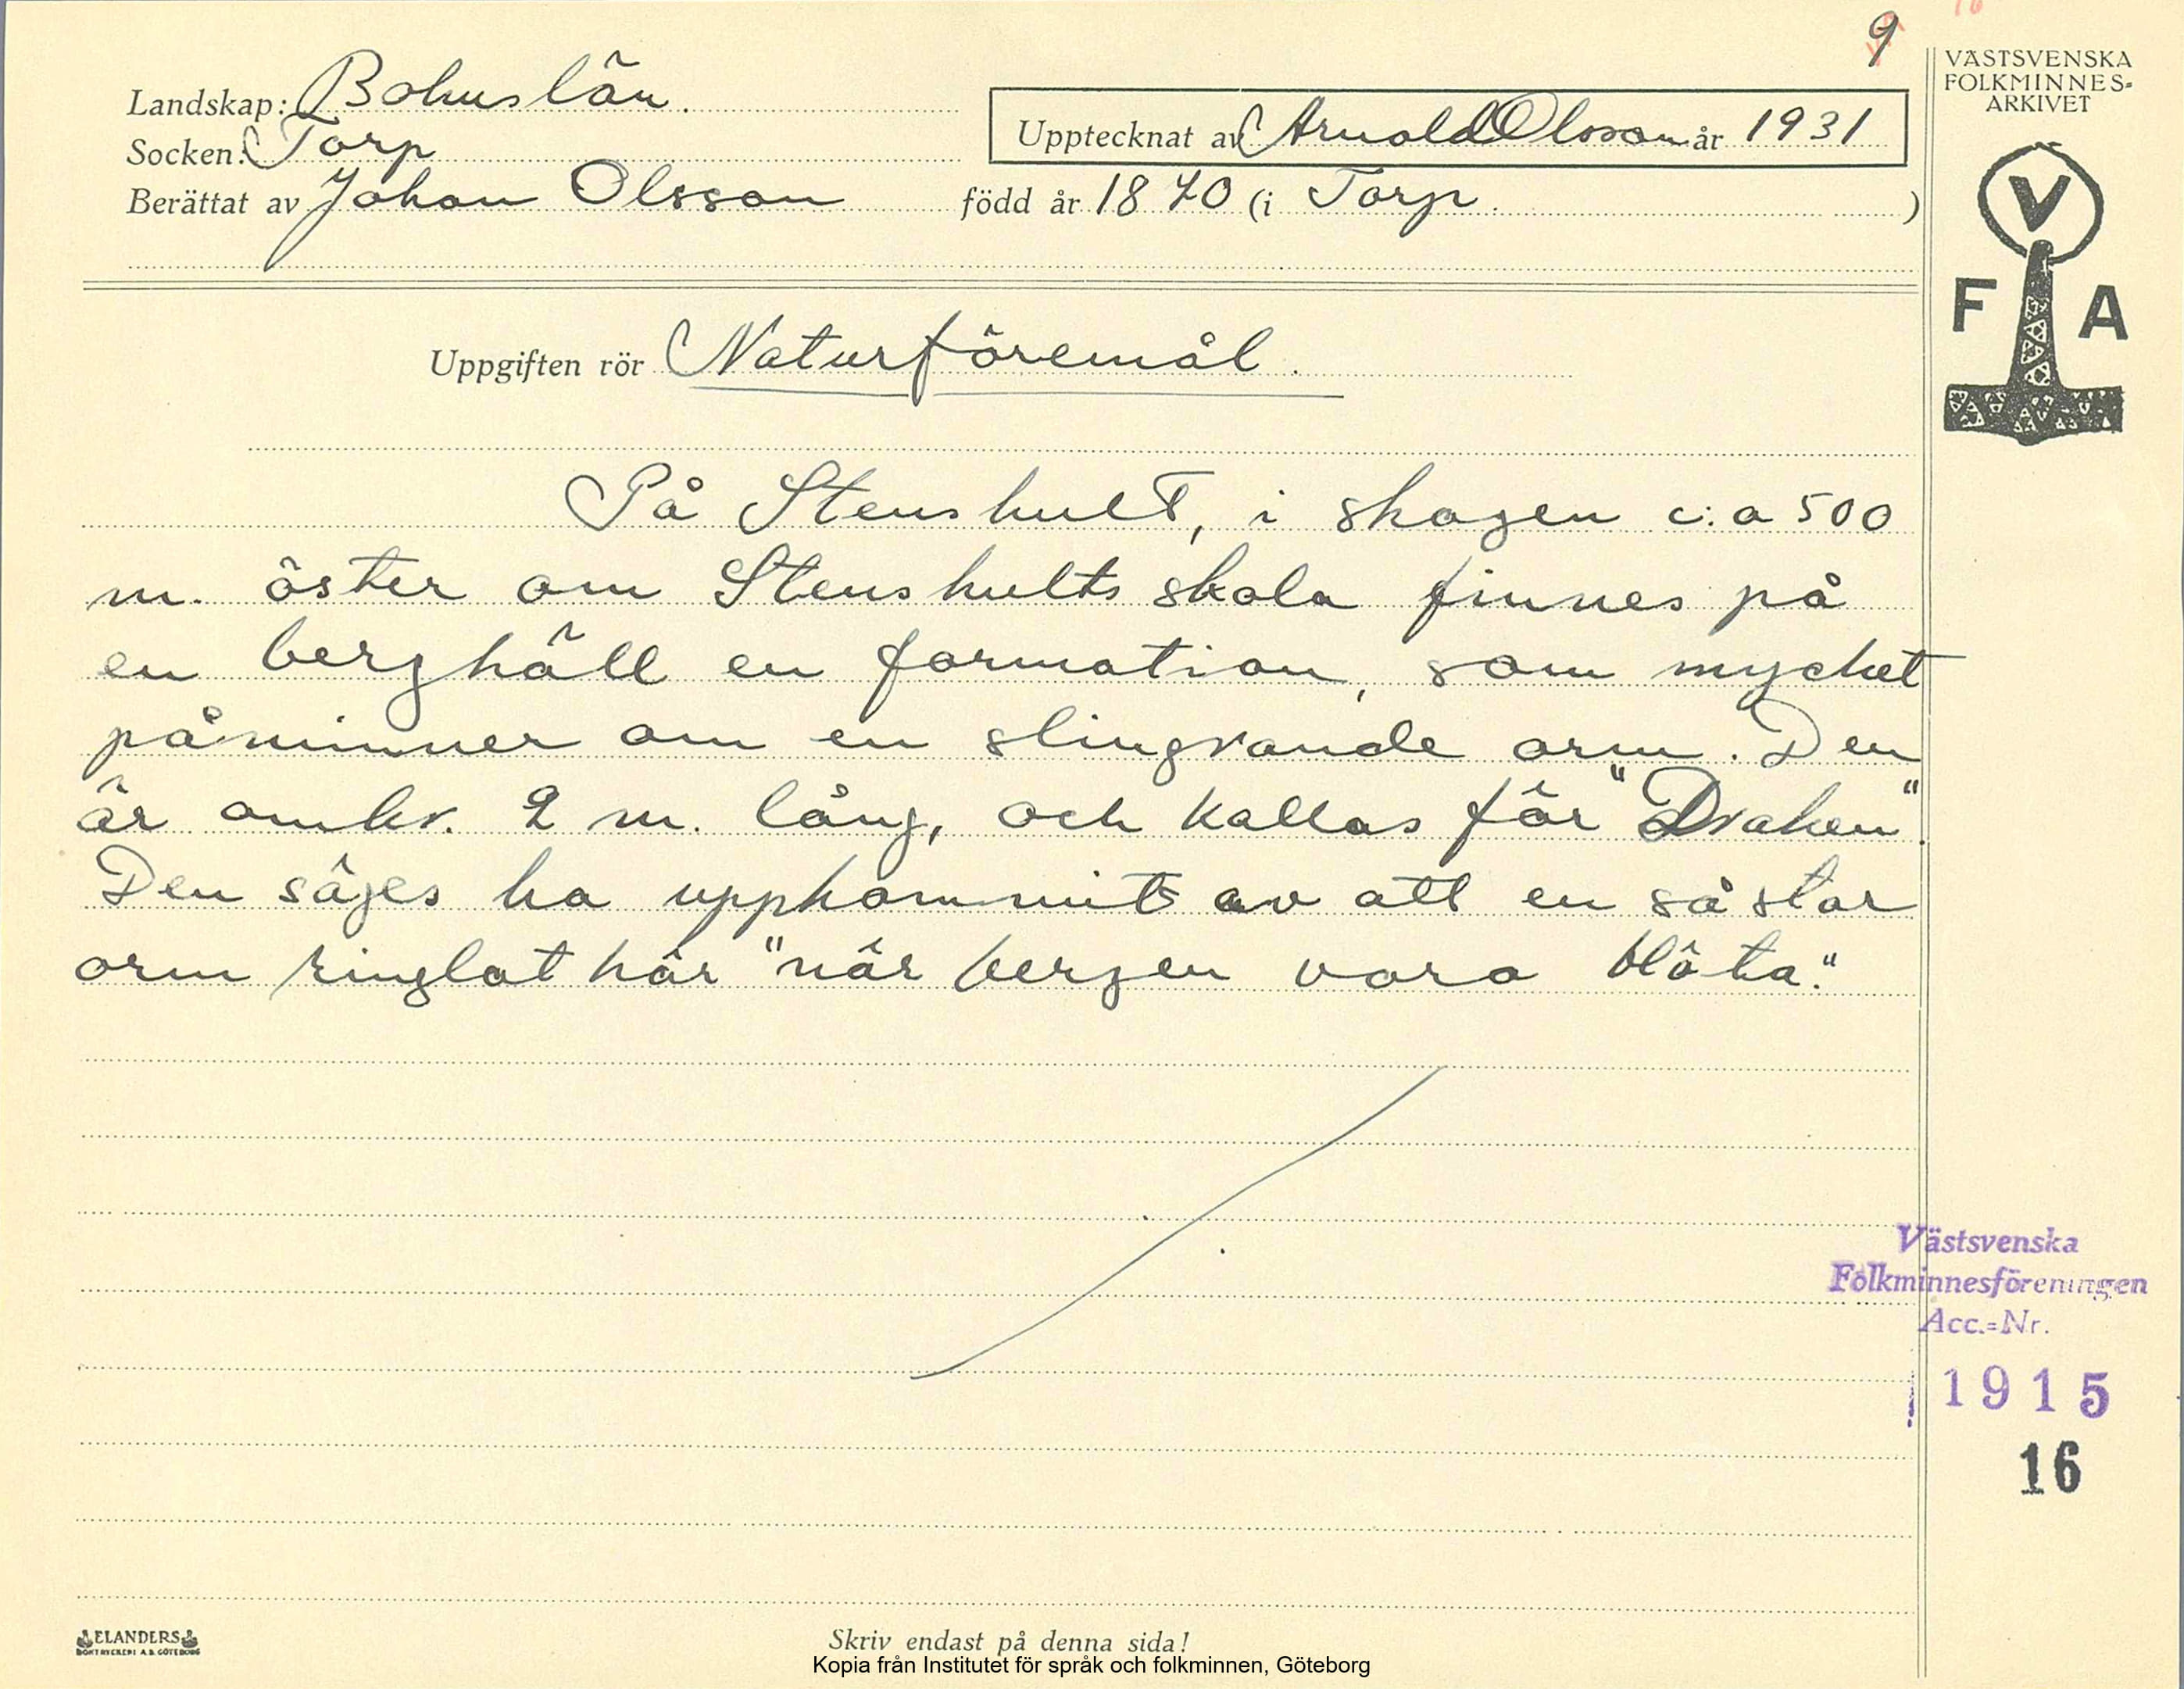 9
16
VÄSTSVENSKA
FOLKMINNES-
ARKIVET
Landskap: Bohuslän.
Socken: Torp
Upptecknat av Arnold Olsson år 1931
Berättat av Johan Olsson född år 1870 (i Torp. )
V
F A
Uppgiften rör Naturföremål.
På Stenshult, i skogen c:a 500
m. öster om Stenshults skola finnes på
en berghäll en formation, som mycket
påminner om en slingrande orm. Den
är omkr. 2 m. lång, och kallas för "Draken".
Den säges ha uppkommit av att en så stor
orm ringlat här "när bergen voro blöta."
Västsvenska
Folkminnesföreningen
Acc.=Nr.
1915
16
ELANDERS
BOKTRYCKERI A.B. GÖTEBORG
Skriv endast på denna sida!
Kopia från Institutet för språk och folkminnen, Göteborg